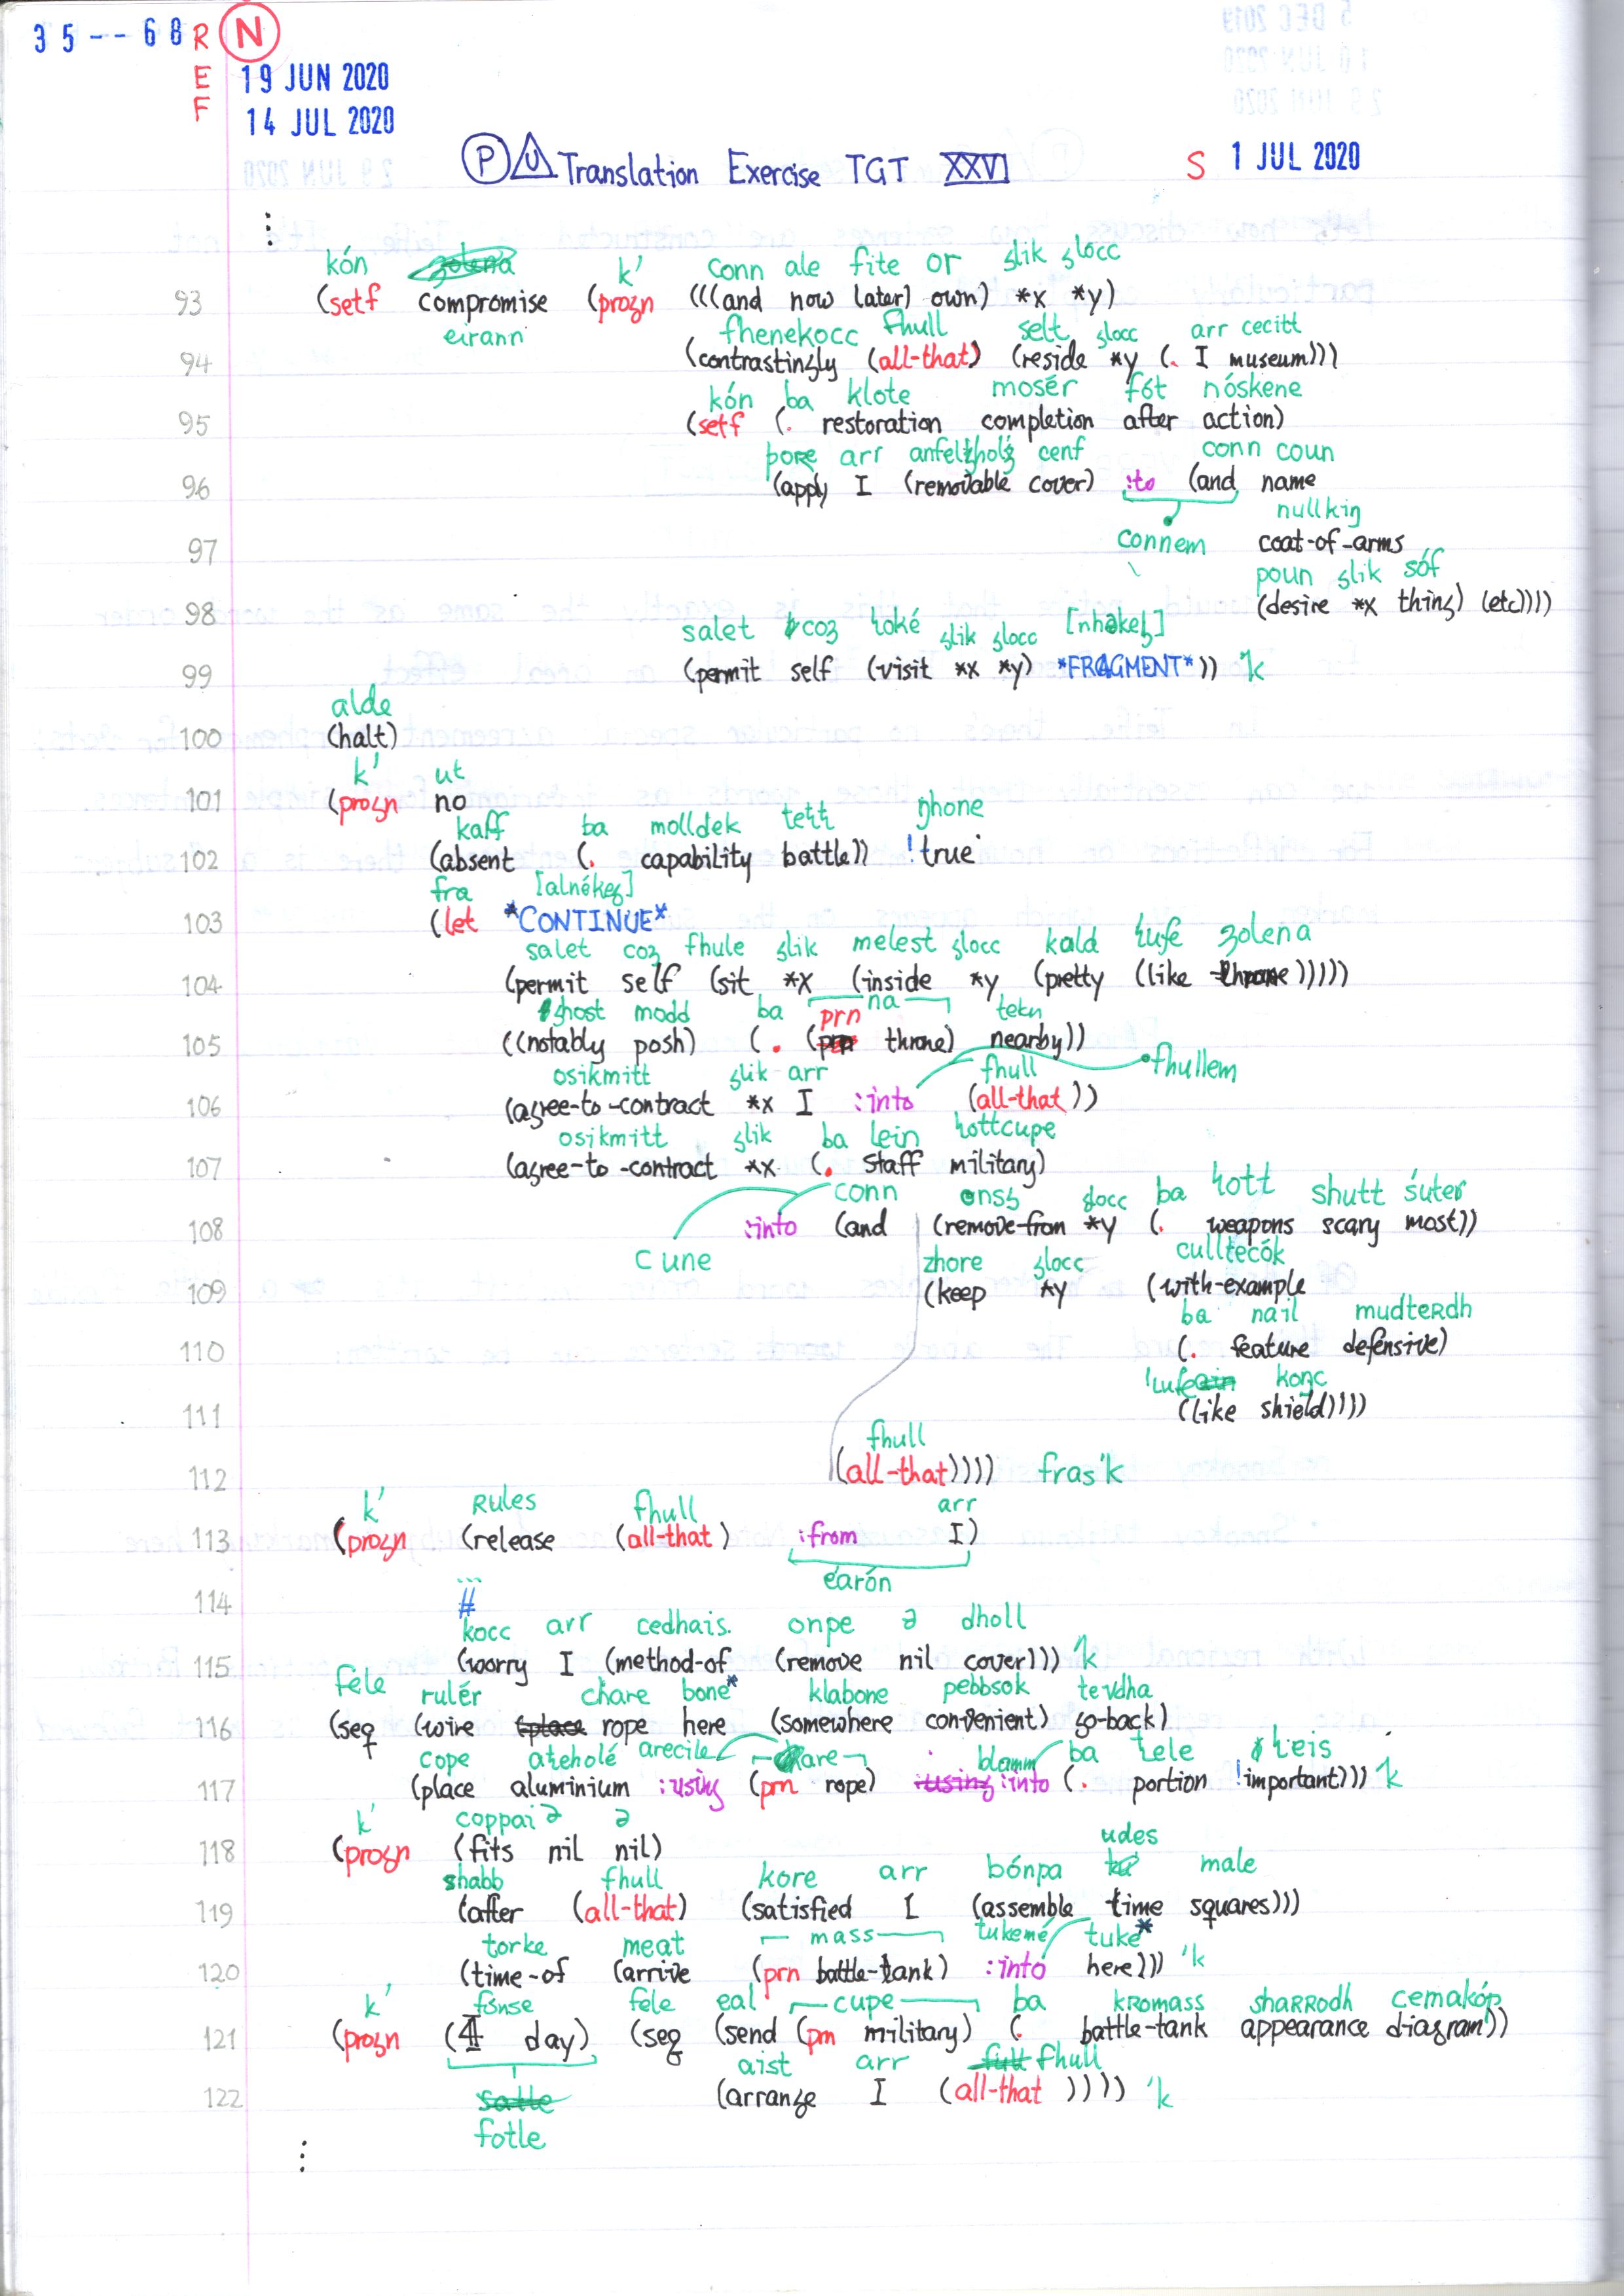 35--68 R N
E 19 JUN 2020
F 14 JUL 2020
P U Translation Exercise TGT XXVI S 1 JUL 2020
⋮
kón k' conn ale fite or slik slocc
93 (setf compromise (progn (((and now later) own) *x *y)
eirann fhenekocc fhull selt slocc arr cecitt
94 (contrastingly (all-that) (reside *y (. I museum)))
kón ba klote mosér fót nóskene
95 (setf (. restoration completion after action)
pore arr cenf conn coun
96 (apply I (removable cover) :to (and name
nullkig
97 connem coat-of-arms
poun slik sóf
98 (desire *x thing) (etc))))
salet coz slik slocc
99 (permit self (visit *x *y) *FRAGMENT*)) 'k
alde
100 (halt)
k' ut
101 (progn no
kaff ba molldek
102 (absent (. capability battle)) !true
fra
103 (let *CONTINUE*
salet coz fhule slik melest slocc kald
104 (permit self (sit *x (inside *y (pretty (like throne)))))
modd ba na tekn
105 ((notably posh) (. (prn throne) nearby))
osikmitt slik arr fhull fhullem
106 (agree-to-contract *x I :into (all-that))
osikmitt slik ba lein
107 (agree-to-contract *x (. staff military)
conn slocc ba shutt śuter
108 :into (and (remove-from *y (. weapons scary most))
cune zhore slocc culltecók
109 (keep *y (with-example
ba nail mudteRdh
110 (. feature defensive)
111 (like shield))))
fhull
112 (all-that)))) fras'k
k' Rules fhull arr
113 (progn (release (all-that) :from I)
éarón
114 #
kocc arr cedhais. onpe ə dholl
115 (worry I (method-of (remove nil cover))) 'k
fele rulér chare bone* klabone pebbsok tevdha
116 (seq (wire rope here (somewhere convenient) go-back)
cope ateholé arecile blamm ba tele
117 (place aluminium :using (prn rope) :into (. portion !important))) 'k
k' coppai ə ə
118 (progn (fits nil nil)
shabb fhull kore arr bónpa udes male
119 (after (all-that) (satisfied I (assemble time squares)))
torke meat mass tukemé tuke*
120 (time-of (arrive (prn battle-tank) :into here))) 'k
k' fonse fele eal cupe ba kRomass shaRRodh cemakóp
121 (progn (4 day) (seq (send (prn military) (. battle-tank appearance diagram))
aist arr fhull
122 (arrange I (all-that)))) 'k
fotle
⋮